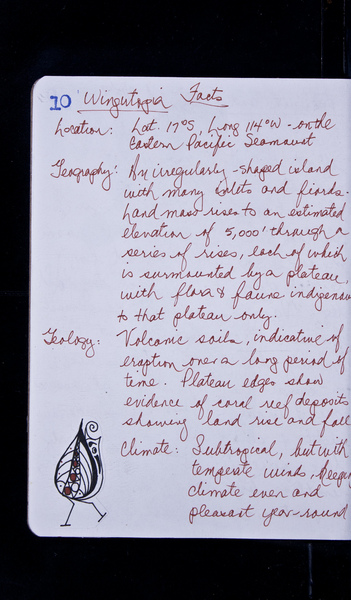 10 Wingutopia Facts
Location: Lat. 17°S, Long 114°W - on the
Eastern Pacific Seamount
Geography: An irregularly-shaped island
with many inlets and fiords.
Land mass rises to an estimated
elevation of 5,000' through a
series of rises, each of which
is surmounted by a plateau,
with flora & fauna indigenou
to that plateau only.
Geology: Volcanic soils, indicative of
eruption over a long period of
time. Plateau edges show
evidence of coral reef deposits
showing land rise and fall
Climate: Subtropical, but with
temperate winds, keepin
climate even and
pleasant year-round